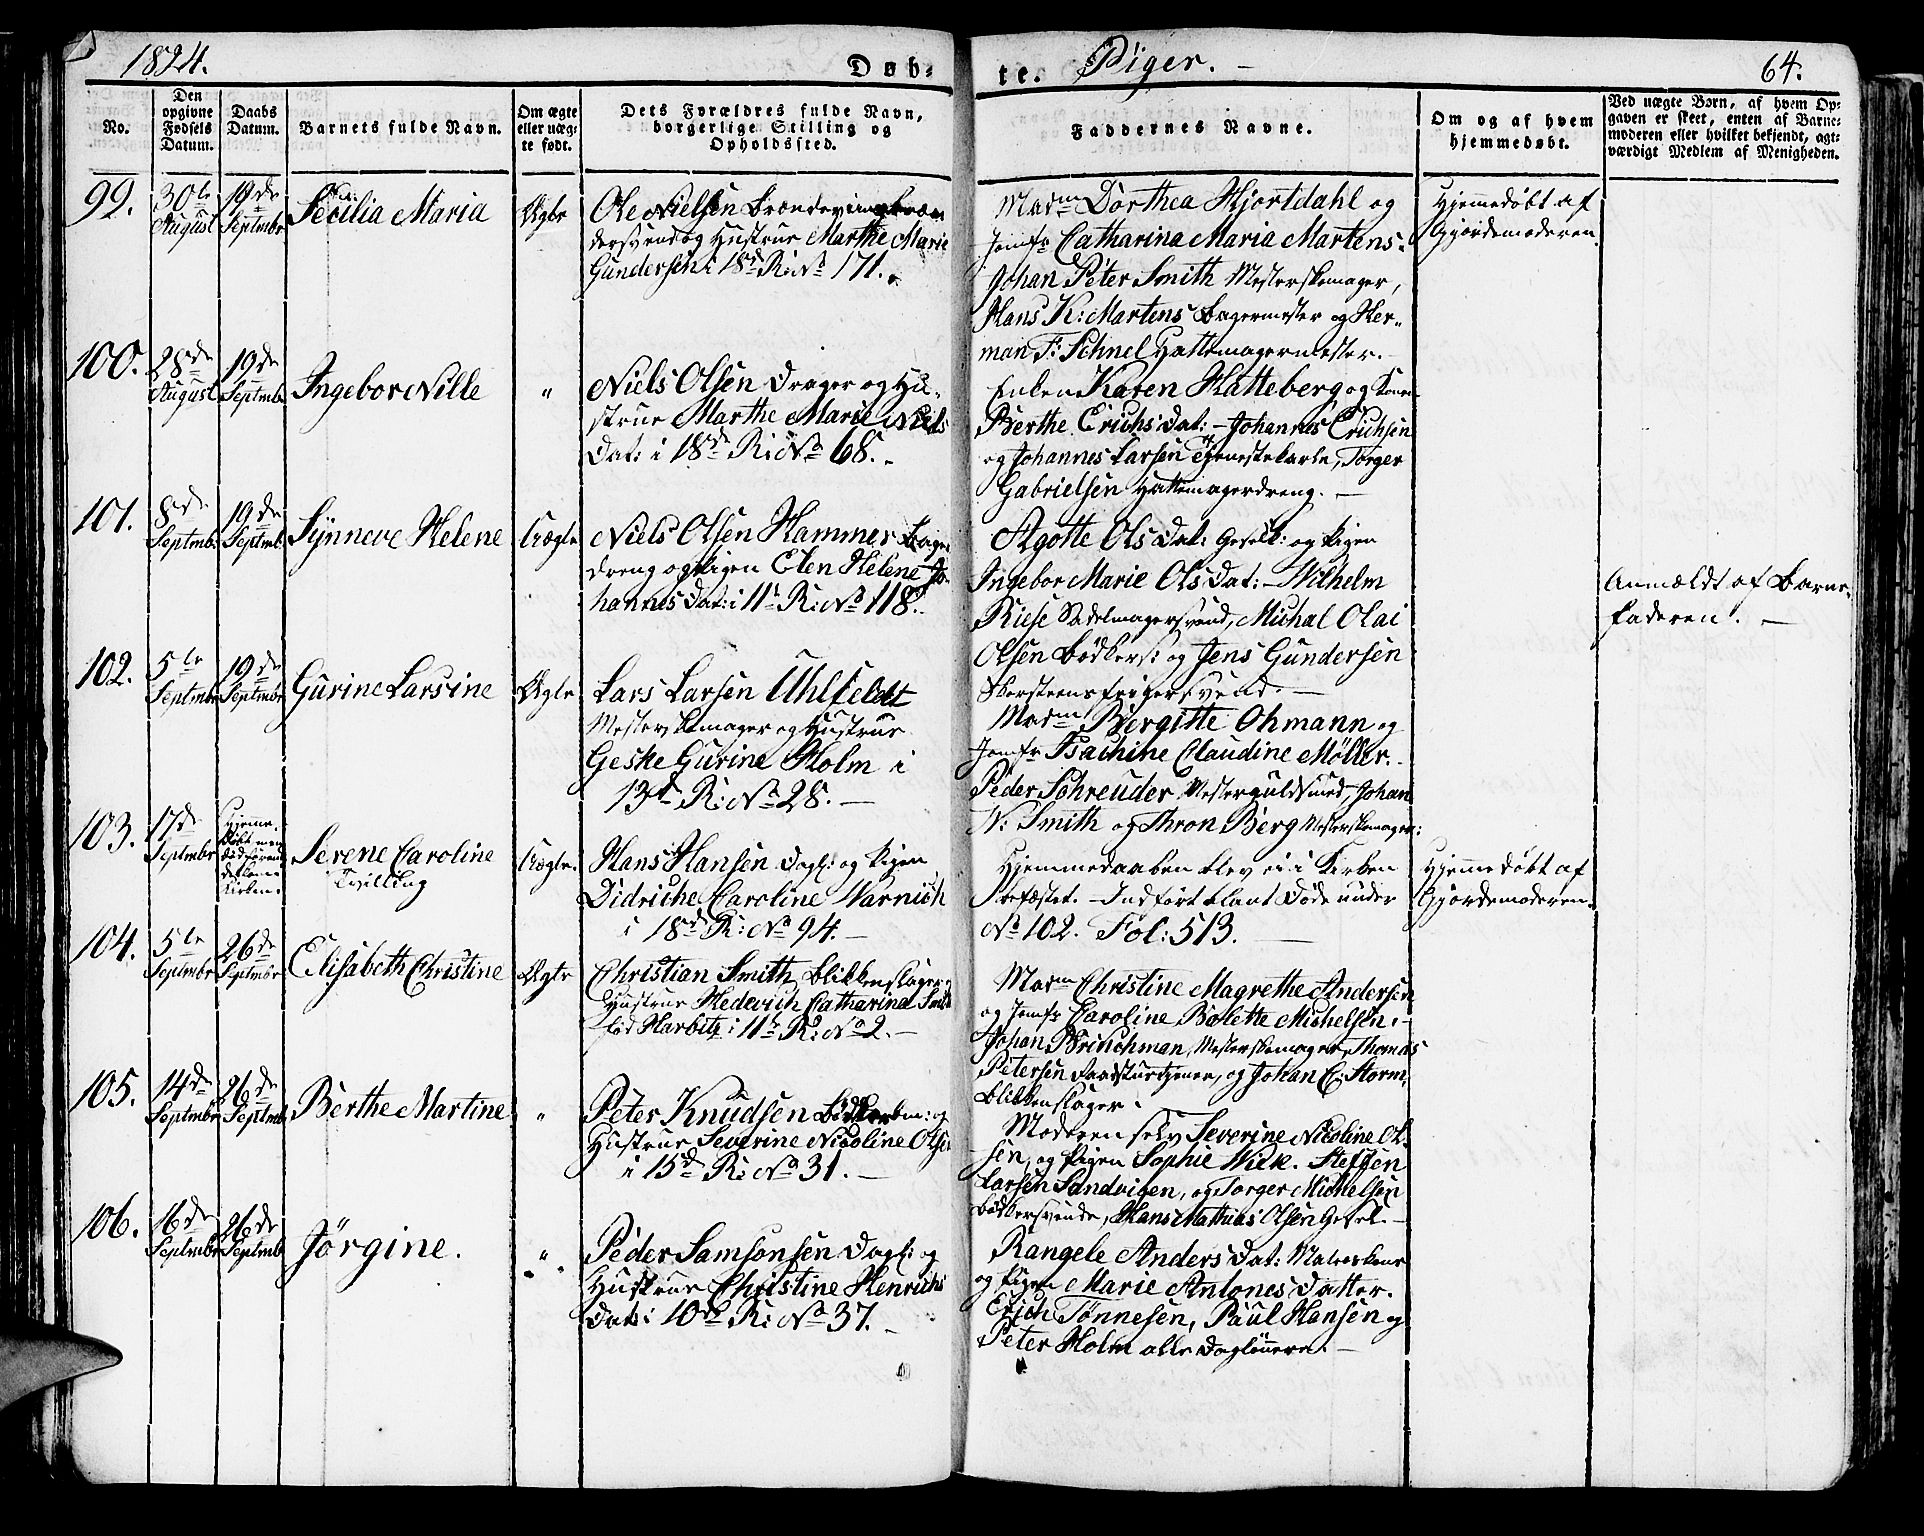 1824.
Døb-
te. Piger. -
64.
No.
Den opgivne Fødsels Datum.
Daabs Datum.
Barnets fulde Navn.
Om ægte eller uæg- te født.
Dets Forældres fulde Navn, borgerlige Stilling og Opholdssted.
Faddernes Navne.
Om og af hvem hjemmedøbt.
Ved uægte Børn, af hvem Op- gaven er skeet, enten af Barne- moderen eller hvilket bekjendt, agt- værdigt Medlem af Menigheden.
99. 30te August 19de Septmbr Secilia Maria Ægte
Ole Nielsen Brændeviinsbræn
dersvend og Hustrue Marthe Marie
Gundersen i 18d R: No 171.
Madm Dorthea Hjortdahl og
Jomfr Catharina Maria Martens.
Johan Peter Smith Mesterskomager,
Hans K: Martens Bagermester og Her-
man F: Schnel Hattemagermester. -
Hjemedøbt af
Gjordemoderen.
100. 28de August 19de Septmbr Ingebor Nille "
Niels Olsen Drager og Hu-
strue Marthe Marie Niels
Dat: i 18de R: No 68. -
Enken Karen Hatteberg og Konen
Berthe Erichs Dat: - Johannes Erichsen
og Johannes Larsen Tjenestekarle, Torger
Gabrielsen Hattemagerdreng. -
101. 8de Septmbr 19de Septmbr Synneve Helene Uægte
Niels Olsen Hammer Bager
dreng og Pigen Elen Helene Jo-
hannes Dat: i 11t R: No 118.
Agotte Ols Dat: Geselk: og Pigen
Ingebor Marie Ols Dat: - Wilhelm
Riese Sadelmagersvend, Michal Olai
Olsen Bødkers: og Jens Gundersen
Skorsteensfeiersvend. -
Anmældt af Barne-
faderen. -
102. 5te Septmbr 19de Septmbr Gurine Larsine Ægte
Lars Larsen Uhlfeldt
Mesterskomager og Hustrue
Geske Gurine Holm i
13d R: No 28. -
Madm Bergitte Ohmann og
Jomfr Isachine Claudine Møller. -
Peder Schreuder Mesterguldsmed, Johan
N: Smith og Thron Berg Mesterskomager:
103. 17de Septmbr Hjeme- døbt men død foren det kom i Kirken. Serene Caroline Uægte.
Tvilling
Hans Hansen Dagl: og Pigen
Didriche Caroline Warnich
i 18d R: No 94. -
Hjemmedaaben blev ei i Kirken
stefæstet. - Indført blant Døde under
No 102. Fol: 513. -
Hjemedøbt af
Gjordemoderen.
104. 5te Septmbr 26de Septmbr Elisabeth Christine Ægte
Christian Smith, Blikkenslager
Hustrue Hedevich Catharina Smith
fød Harbitz i 11te R: No 2. -
Madm Christine Magrethe Andersen
og Jomfr Caroline Bolette Michelsen. -
Johan Mesterskomager, Thomas
Petersen Raadstuetjener, og Johan C: Storm,
Blikkenslager.
105. 14de Septmbr 26de Septmbr Berthe Martine "
Peter Knudsen og
Hustrue Severine Nicoline Olsen
i 15d R: No 31. -
Moderen selv Severine Nicoline Ol-
sen, og Pigen Sophie Wiek. Steffen
Larsen Sandvigen, og Torger Michelsen
Bødkersvende, Hans Mathias Olsen Gesel. -
106. 16de Septmbr 26de Septmbr Jørgine. "
Peder Samsonsen Dagl: og
Hustrue Christine Henrichs
Dat: i 10de R: No 37. -
Rangele Anders Dat:
og Pigen Marie Antones Datter.
Erich Tønnesen, Paul Hansen og
Peter Holm alle Daglönnere. -